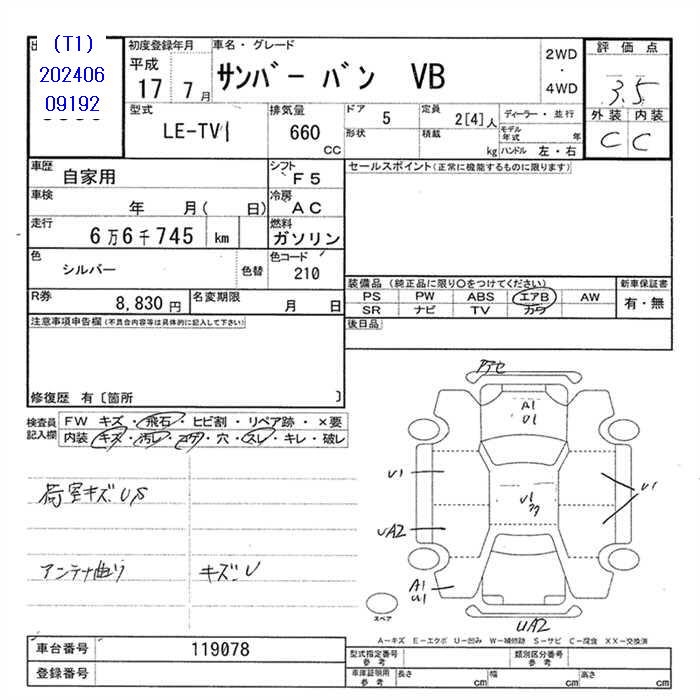 出
(T1)
202406
09192
初度登録年月
平成
17 7月
車名・グレード
サンバー バン VB
2WD
・
4WD
評価点
3.5
外装 内装
C C
型式
LE-TV1
排気量
660
CC
ドア
5
形状
定員
2[4]人
積載
kg
ディーラー・並行
モデル年式 年
ハンドル 左・右
車歴
自家用
シフト
F5
セールスポイント(正常に機能するものに限ります)
車検
年 月( 日)
冷房
AC
走行
6万6千745 km
燃料
ガソリン
色
シルバー
色替
色コード
210
装備品 (純正品に限り○をつけてください)
新車保証書
PS PW ABS エアB AW
SR ナビ TV カワ
有・無
R券
8,830 円
名変期限
月 日
後日品
注意事項申告欄(不具合内容等は具体的に記入して下さい)
修復歴 有〔箇所 〕
検査員
記入欄
FW キズ・飛石・ヒビ割・リペア跡・×要
内装 キズ・汚レ・コゲ・穴・スレ・キレ・破レ
荷室キズUS
アンテナ曲り
キズ U
アセ
A1
U1
U1
U1
UA2
U1
A1
U1
UA2
スペア
A−キズ E−エクボ U−凹み W−補修跡 S−サビ C−腐食 XX−交換済
車台番号
119078
登録番号
型式指定番号
参考
類別区分番号
参考
車庫証明用
参考
長さ cm 幅 cm 高さ cm